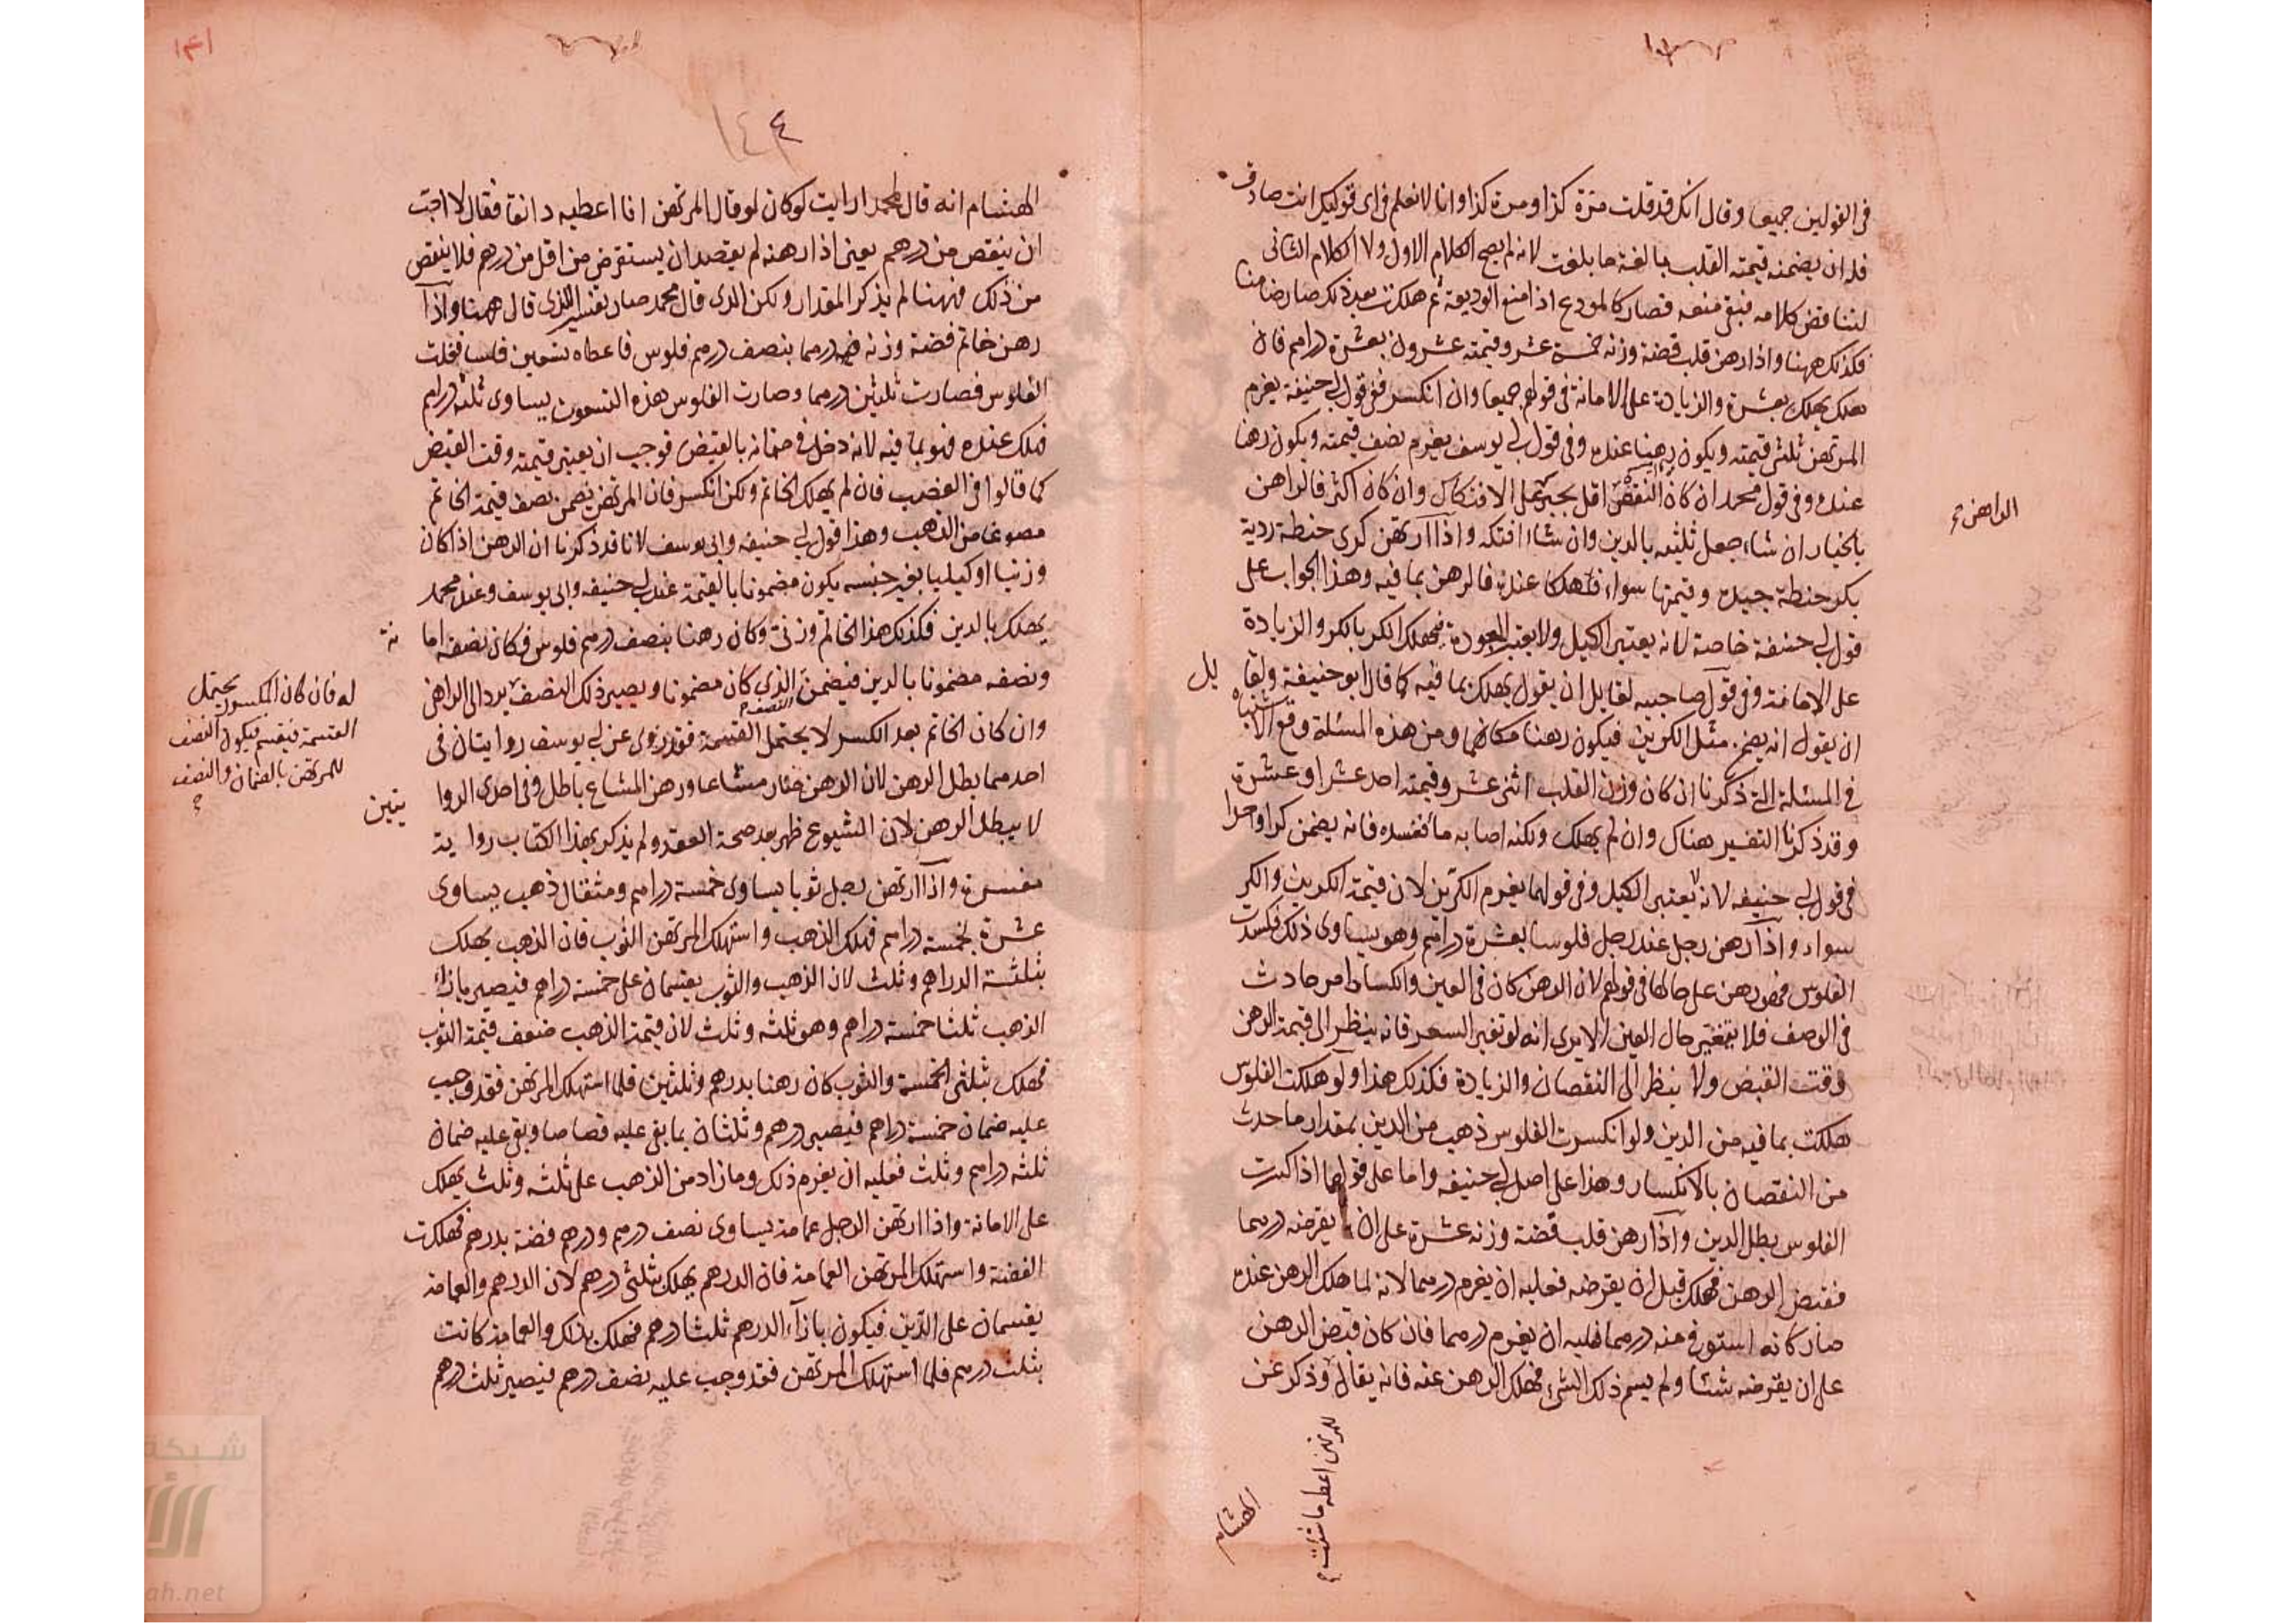 في القولين جميعا وقال انك قد قلت مرة كذا ومرة كذا وانا لا نعلم في اى قوليك انت صادق
فله ان يضمنه قيمته القلب بالغة ما بلغت لانه لم يصح الكلام الاول ولا الكلام الثانى
لتناقض كلامه فبقى منعه فصار كالمودع اذا منع الوديعة ثم هلكت بعد ذلك صار ضامنا
فكذلك ههنا واذا رهن قلب فضة وزنه خمسة عشر وقيمته عشرون بعشرة دراهم فان
هلك يهلك بعشرة والزيادة على الامانة في قولهم جميعا وان انكسر ففى قول ابى حنيفة يغرم
المرتهن ثلثى قيمته ويكون رهنا عنده وفي قول ابى يوسف يغرم نصف قيمته ويكون رهنا
عنده وفي قول محمد ان كان النقص اقل يجبر على الافتكاك وان كان اكثر فالراهن
الراهن
بالخيار ان شاء جعل ثلثيه بالدين وان شاء افتكه واذا ارتهن كرى حنطة ردية
بكر حنطة جيدة وقيمتها سواء فهلكا عنده فالرهن بما فيه وهذا الجواب على
قول ابى حنيفة خاصة لانه يعتبر الكيل ولا يعتبر الجودة فيهلك الكر بالكر والزيادة
على الامانة وفي قول صاحبيه لقايل ان يقول يهلك بما فيه كما قال ابو حنيفة ولقا يل
ان يقول انه يضمن مثل الكرين فيكون رهنا مكانهما ومن هذه المسئلة وقع الاشتباه
في المسئلة التى ذكرنا ان كان وزن القلب اثنى عشر وقيمته احد عشر او عشرة
وقد ذكرنا التفسير هناك وان لم يهلك ولكنه اصابه ما افسده فانه يضمن كرا واحدا
في قول ابى حنيفه لانه يعتبر الكيل وفي قولهما يغرم الكرين لان قيمة الكرين والكر
سواء واذا رهن رجل عند رجل فلوسا بعشرة دراهم وهو يساوى ذلك فكسدت
الفلوس فهو رهن على حالها في قولهم لان الرهن كان في العين والكساد امر حادث
في الوصف فلا يتغير حال العين الا يرى انه لو تغير السعر فانه ينظر الى قيمة الرهن
وقت القبض ولا ينظر الى النقصان والزيادة فكذلك هذا ولو هلكت الفلوس
هلكت بما فيه من الدين ولو انكسرت الفلوس ذهب من الدين بمقدار ما حدث
من النقصان بالانكسار وهذا على اصل ابى حنيفه واما على قولهما اذا كسرت
الفلوس بطل الدين واذا رهن قلب فضة وزنه عشرة على ان يقرضه درهما
فقبض الرهن فهلك قبل ان يقرضه فعليه ان يغرم درهما لانه لما هلك الرهن عنده
صار كانه استوفى منه درهما فليه ان يغرم درهما فان كان قبض الرهن
على ان يقرضه شئا ولم يسم ذلك الشئ فهلك الرهن عنه فانه يقال وذكر عن
للمرتهن اعطه ما شئت
الهشام
١٤١
١٤٤
الهشام انه قال لمحمد ارايت لو كان لو قال المرتهن انا اعطيه دانقا فقال لا احب
ان ينقص من درهم يعنى اذا رهنه لم يقصد ان يستقرض من اقل من درهم فلا ينقص
من ذلك فههنا لم يذكر المقدار ولكن الذى قال محمد صار تفسير الذى قال ههنا واذا
رهن خاتم فضة وزنه درهما بنصف درهم فلوس فاعطاه تسعين فلسا فغلت
الفلوس فصارت ثلثين درهما وصارت الفلوس هذه التسعون يساوى ثلثه دراهم
فهلك عنده فهو بما فيه لانه دخل في ضمانه بالقبض فوجب ان يعتبر قيمته وقت القبض
كما قالوا في الغصب فان لم يهلك الخاتم ولكن انكسر فان المرتهن يضمن نصف قيمة الخاتم
مصوغا من الذهب وهذا قول ابى حنيفه وابى يوسف لانا قد ذكرنا ان الرهن اذا كان
وزنيا او كيليا بغير جنسه يكون مضمونا بالقيمة عند ابى حنيفه وابى يوسف وعند محمد
يهلك بالدين فكذلك هذا الخاتم وزنى وكان رهنا بنصف درهم فلوس فكان نصفه اما نة
ونصفه مضمونا بالدين فيضمن النصف الذى كان مضمونا ويصير ذلك النصف يرد الى الراهن
له فان كان المكسور يحتمل
القسمة فيقسم فيكون النصف
للمرتهن بالضمان والنصف
وان كان الخاتم بعد الكسر لا يحتمل القسمة فقد روى عن ابى يوسف روايتان في
احدهما بطل الرهن لان الرهن صار مشاعا ورهن المشاع باطل وفي احدى الروا يتين
لا يبطل الرهن لان الشيوع ظهر بعد صحة العقد ولم يذكر بهذا الكتاب رواية
مفسرة واذا ارتهن رجل ثوبا يساوى خمسة دراهم ومثقال ذهب يساوى
عشرة بخمسة دراهم فهلك الذهب واستهلك المرتهن الثوب فان الذهب يهلك
بثلثة الدراهم وثلث لان الذهب والثوب يقسمان على خمسة دراهم فيصير بازاء
الذهب ثلثا خمسة دراهم وهو ثلثه وثلث لان قيمة الذهب ضعف قيمة الثوب
فهلك بثلثى الخمسة والثوب كان رهنا بدرهم وثلثين فلما استهلك المرتهن فقد وجب
عليه ضمان خمسة دراهم فيصير درهم وثلثان بما بقى عليه قصاصا وبقى عليه ضمان
ثلثه دراهم وثلث فعليه ان يغرم ذلك وما زاد من الذهب على ثلثه وثلث يهلك
على الامانة واذا ارتهن الرجل عمامة يساوى نصف درهم ودرهم فضة بدرهم فهلكت
الفضة واستهلك المرتهن العمامة فان الدرهم يهلك بثلثى درهم لان الدرهم والعمامة
يقسمان على الدين فيكون بازآء الدرهم ثلثا درهم فهلك بذلك والعمامة كانت
بثلث درهم فلما استهلك المرتهن فقد وجب عليه نصف درهم فيصير ثلث درهم